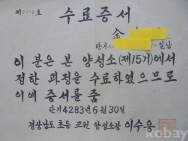 수료증서
단기
이 분은 본 양성소(제15기)에서
정한 과정을 수료하였으므로
이에 증서를 줌
단기4283년6월30일
경상남도초등교원양성소장 이수용
kobay